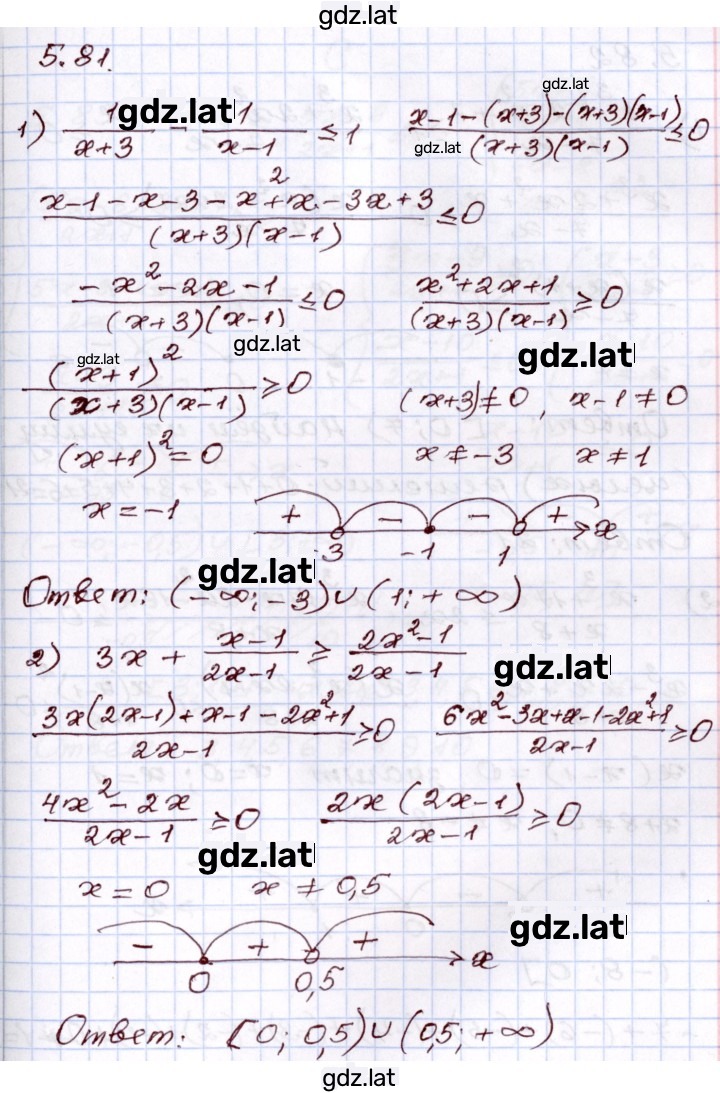 gdz.lat
5.81.
1) 1/(x+3) - 1/(x-1) ≤ 1    (x-1-(x+3)-(x+3)(x-1))/((x+3)(x-1)) ≤ 0
gdz.lat gdz.lat gdz.lat
(x-1-x-3-x²+x-3x+3)/((x+3)(x-1)) ≤ 0
(-x²-2x-1)/((x+3)(x-1)) ≤ 0    (x²+2x+1)/((x+3)(x-1)) ≥ 0
gdz.lat gdz.lat gdz.lat
(x+1)²/((x+3)(x-1)) ≥ 0    (x+3)≠0, x-1≠0
(x+1)²=0    x≠-3    x≠1
x=-1    + - - + x
-3 -1 1
gdz.lat
Ответ: (-∞;-3)∪(1;+∞)
2) 3x + (x-1)/(2x-1) ≥ (2x²-1)/(2x-1)
gdz.lat
(3x(2x-1)+x-1-2x²+1)/(2x-1) ≥ 0    (6x²-3x+x-1-2x²+1)/(2x-1) ≥ 0
(4x²-2x)/(2x-1) ≥ 0    (2x(2x-1))/(2x-1) ≥ 0
gdz.lat
x=0    x≠0,5
gdz.lat
- + + x
0 0,5
Ответ: [0; 0,5)∪(0,5;+∞)
gdz.lat